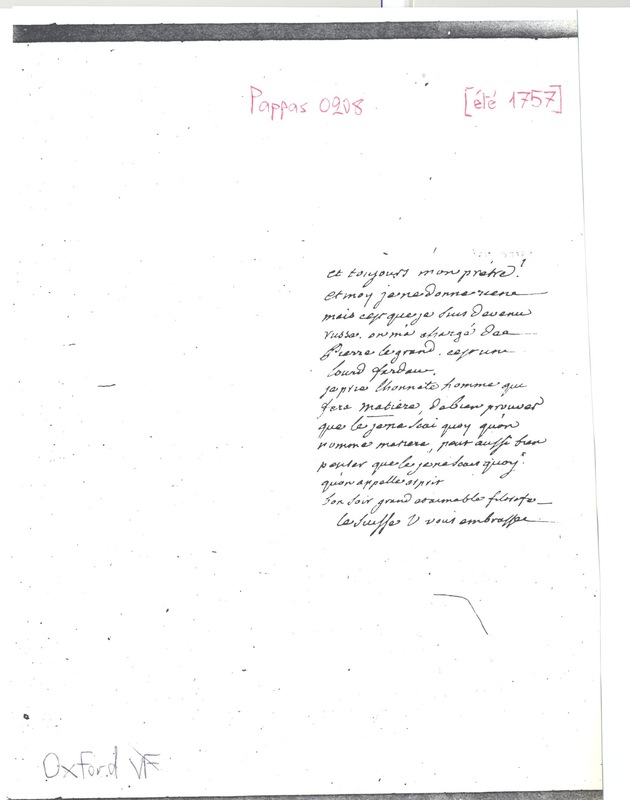 Pappas 0208 [été 1757]
et toujours mon prêtre!
et moy je ne donne rien
mais c'est que je suis devenu
russe. on m'a chargé de
Pierre le grand. c'est un
lourd fardau.
je prie lhonnete homme que
fera matiere, de bien prouver
que le je ne scai quoy qu'on
nomme matiere, peut aussi bien
penser que le je ne scais quoy
qu'on appelle esprit
bon soir grand et aimable filosofe
le suisse V vous embrasse
Oxford VF